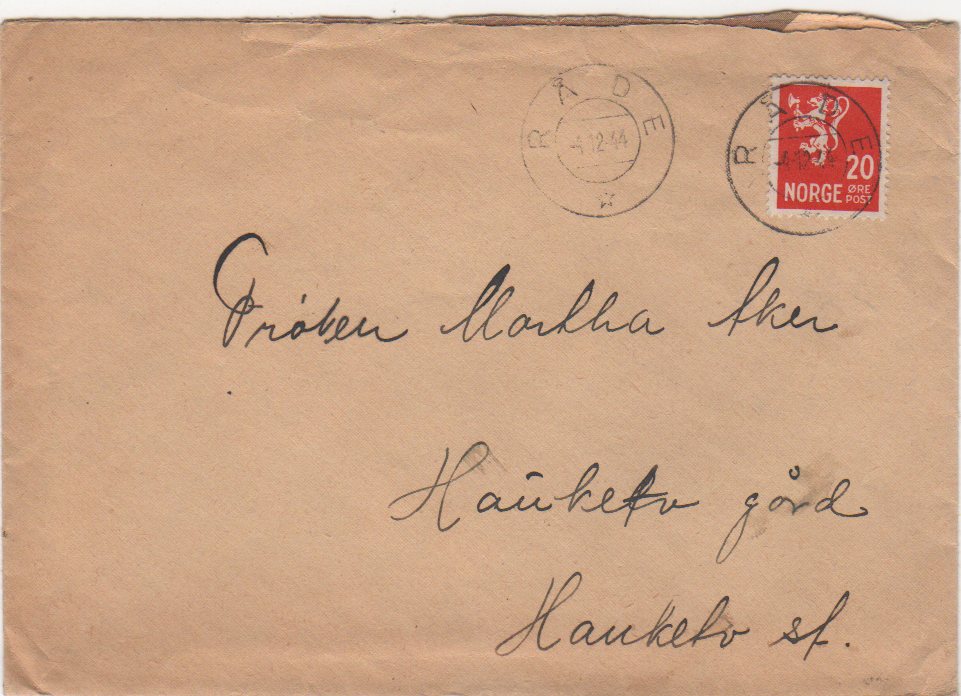 RÅDE
-4.12-44
RÅDE
-4.12-44
20
NORGE ØRE POST
Frøken Martha Aker
Hauketo gård
Hauketo st.